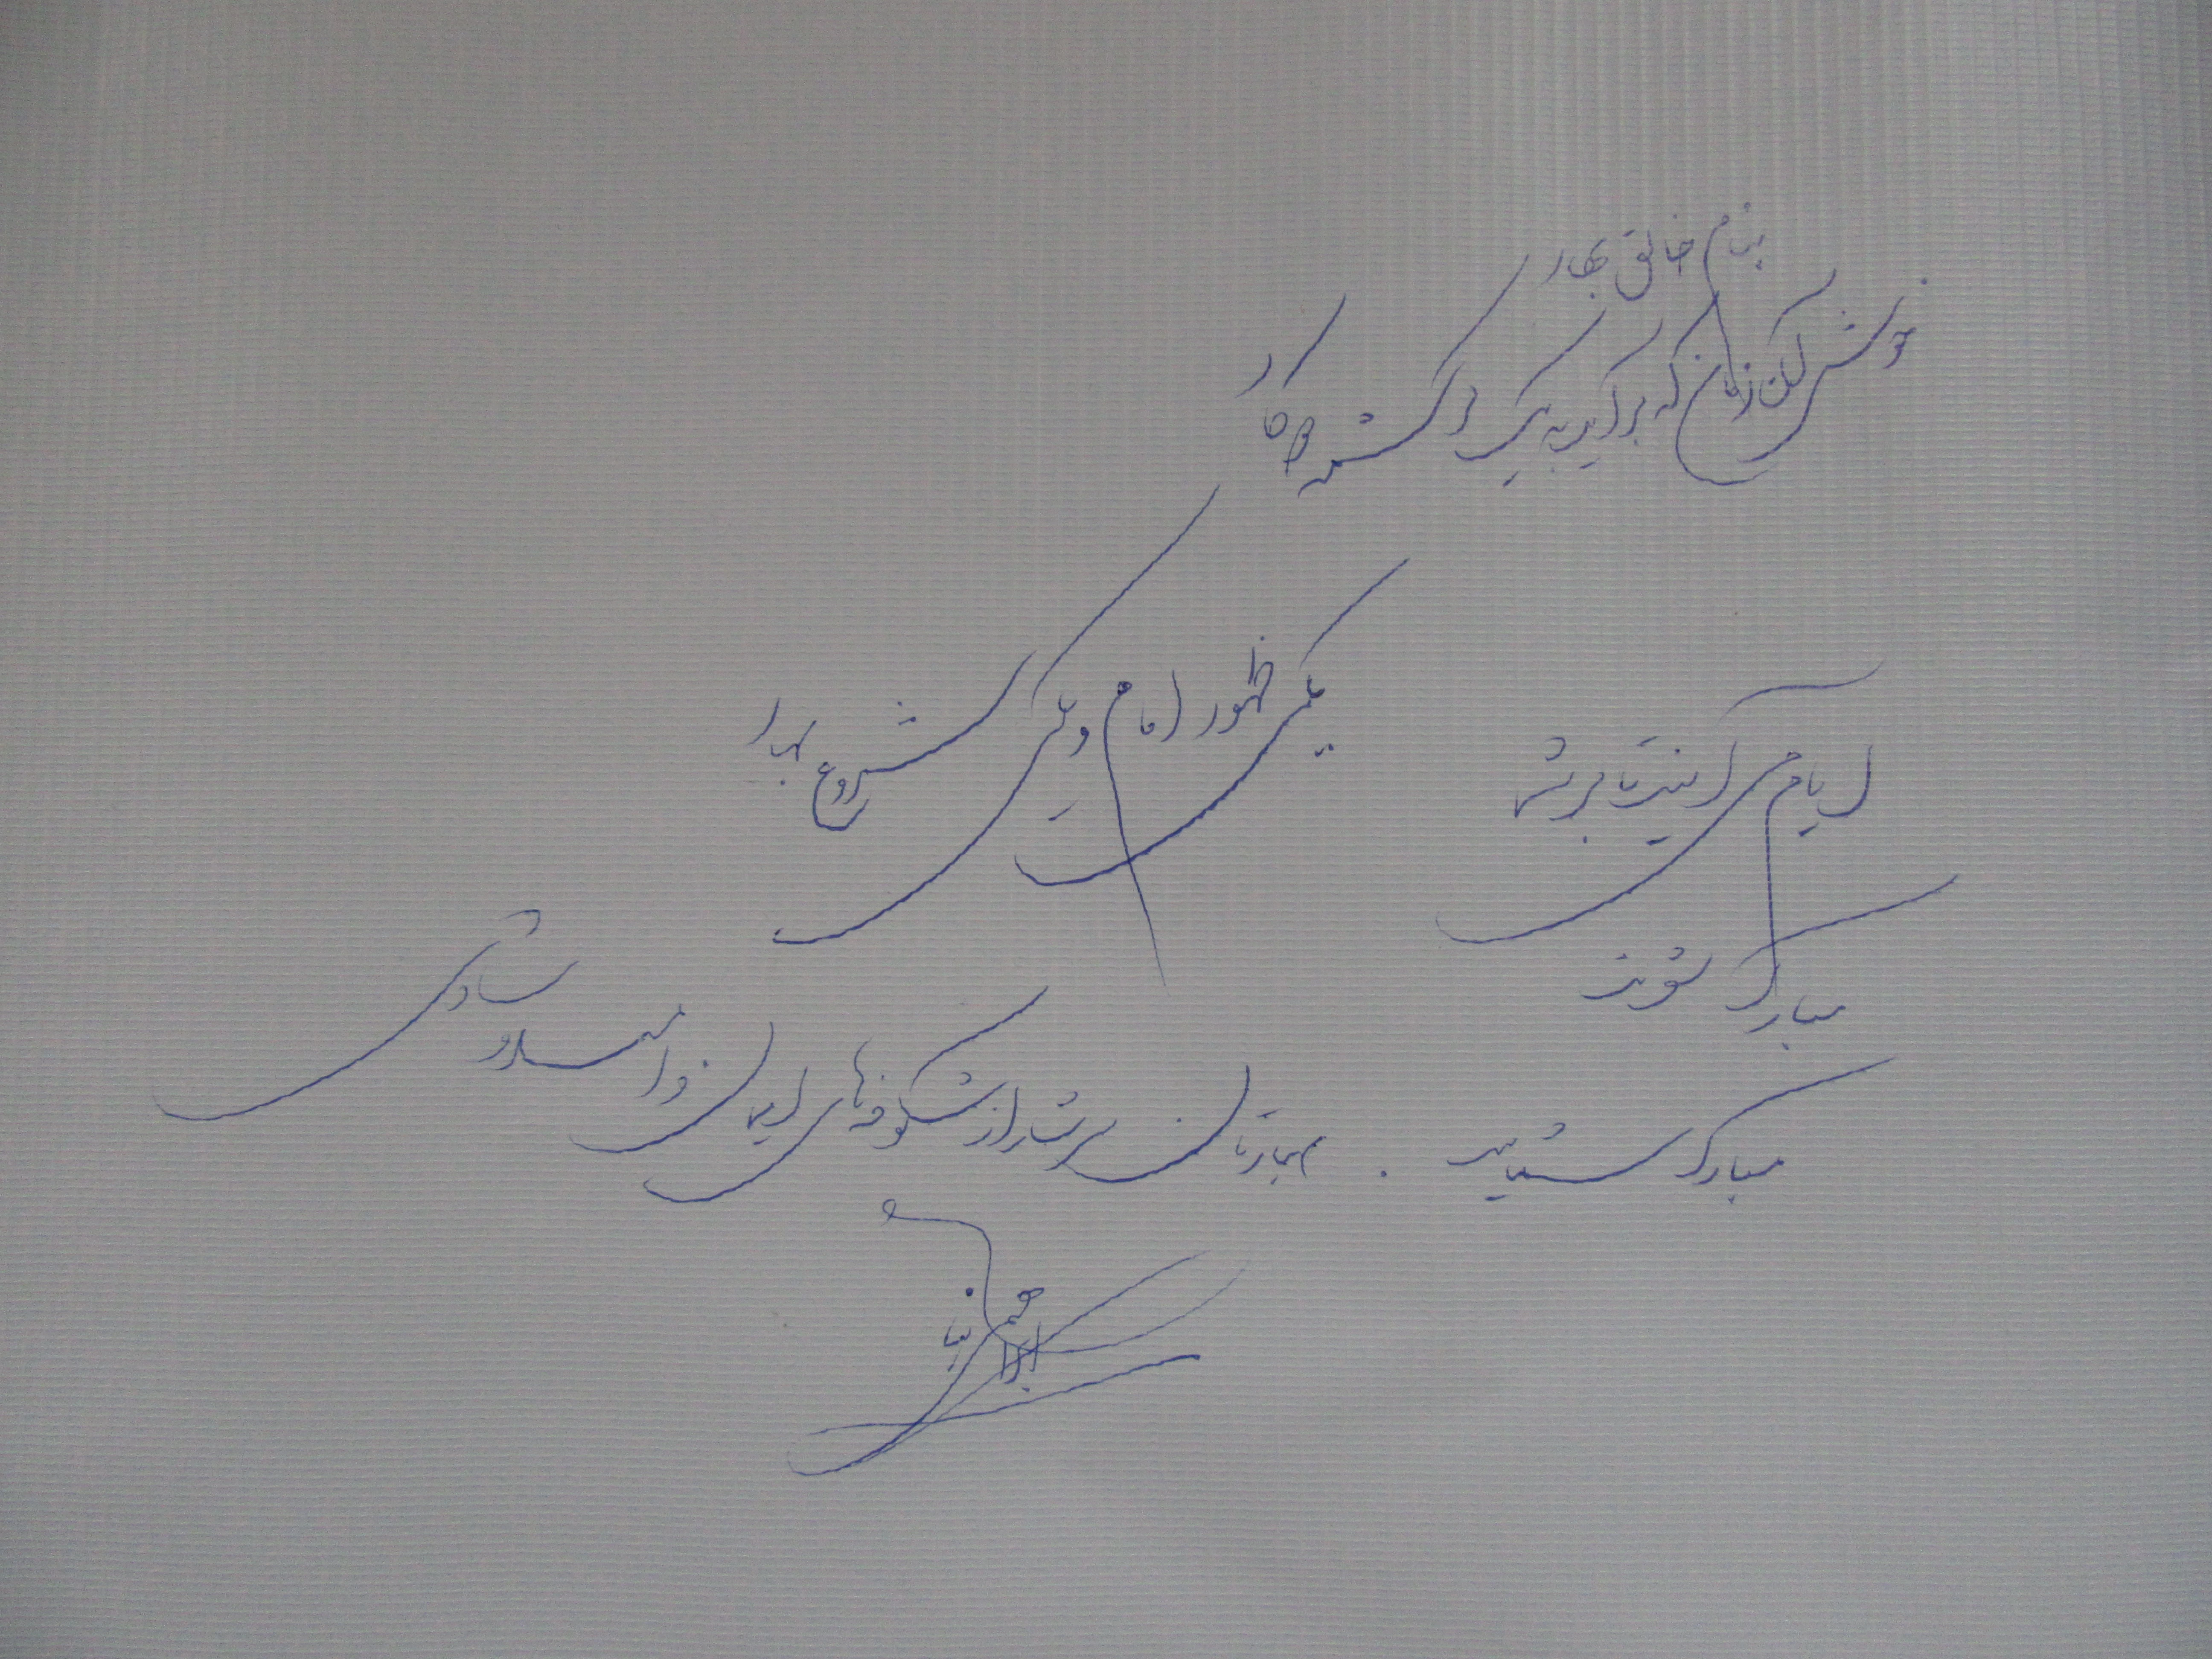 بنام خالق بهار
خوش آن زمان که برآید به یک کرشمه دو کار
یکی ظهور امام و یکی شروع بهار
ایام می آیند تا بر شما
مبارک شوند
مبارک شمایید . بهارتان سرشار از شکوفه های ایمان و امید و شادی
ابراهیمی نیا